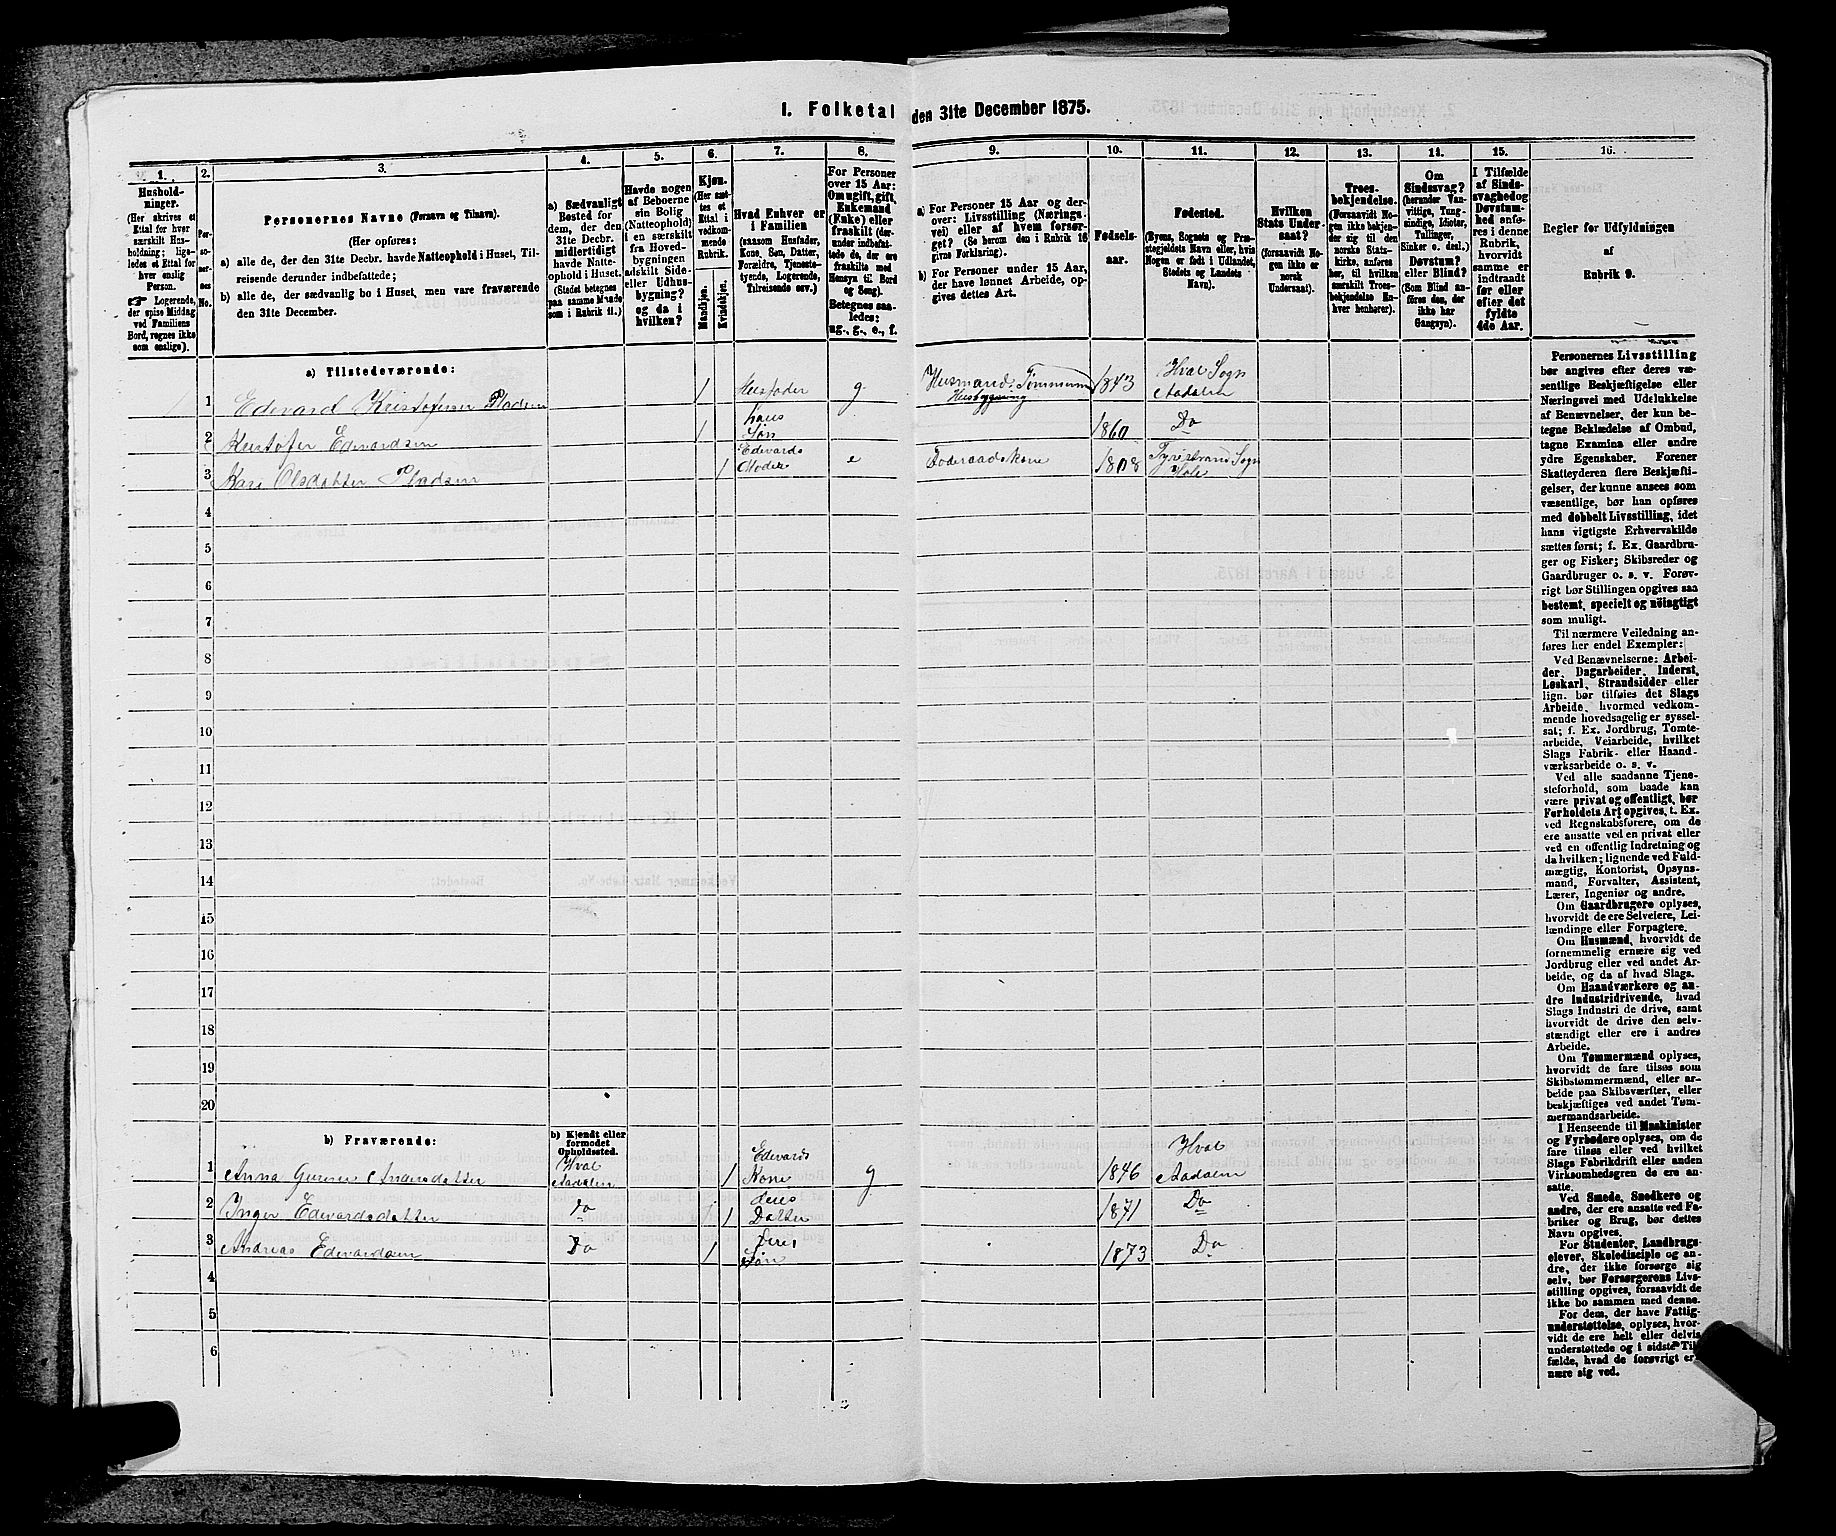 1. Folketal den 31te December 1875.
1.
2.
3.
4.
5.
6.
7.
8.
9.
10.
11.
12.
13.
14.
15.
16.
Hushold-
ninger.
(Her skrives et
Ettal for hver
særskilt Hus-
holdning; lige-
ledes et Ettal for
hver enslig
Person.
☞ Logerende,
der spise Middag
ved Familiens
Bord, regnes ikke
som enslige).
Per-
so-
ner-
nes
No.
Personernes Navne (Fornavn og Tilnavn).
(Her opføres:
a) alle de, der den 31te Decbr. havde Natteophold i Huset, Til-
reisende derunder indbefattede;
b) alle de, der sædvanlig bo i Huset, men vare fraværende
den 31te December.
a) Sædvanligt
Bosted for
dem, der den
31te Decbr.
midlertidigt
havde Natte-
ophold i Huset.
(Stedet betegnes
paa samme Maade
som i Rubrik 11.)
Havde nogen
af Beboerne
sin Bolig
(Natteophold)
i en særskilt
fra Hoved-
bygningen
adskilt Side-
eller Udhus-
bygning?
og da i
hvilken?
Kjøn.
(Her sæt-
tes et
Ettal i
vedkom-
mende
Rubrik.
Mandkjøn.
Kvindekjøn.
Hvad Enhver er
i Familien
(saasom Husfader,
Kone, Søn, Datter,
Forældre, Tjeneste-
tyende, Logerende,
Tilreisende osv.)
For Personer
over 15 Aar:
Om ugift, gift,
Enkemand
(Enke) eller
fraskilt (der-
under indbefat-
tede de, der
ere fraskilte med
Hensyn til Bord
og Seng).
Betegnes saa-
ledes:
ug., g., e., f.
a) For Personer 15 Aar og der-
over: Livsstilling (Nærings-
vei) eller af hvem forsør-
get? (Se herom den i Rubrik 16
givne Forklaring).
b) For Personer under 15 Aar,
der have lønnet Arbeide, op-
gives dettes Art.
Fødsels-
aar.
Fødested.
(Byens, Sognets og Præ-
stegjeldets Navn eller, hvis
Nogen er født i Udlandet,
Stedets og Landets
Navn).
Hvilken
Stats Under-
saat?
(forsaavidt No-
gen ikke er
norsk
Undersaat).
Troes-
bekjendelse.
(Forsaavidt No-
gen ikke bekjen-
der sig til den
norske Stats-
kirke, anføres
her, til hvilken
særskilt Troes-
bekjendelse En-
hver henhører).
Om
Sindssvag?
(herunder Van-
vittige, Tung-
sindige, Idioter,
Tullinger,
Sinker o. desl.)
Døvstum?
eller Blind?
(Som Blind an-
føres den, der
ikke har
Gangsyn).
I Tilfælde
af Sinds-
svaghed og
Døvstum-
hed anfø-
res i denne
Rubrik,
hvorvidt
samme er
indtraadt
før eller
efter det
fyldte
4de Aar.
Regler for Udfyldningen
af
Rubrik 9.
a) Tilstedeværende:
1 Edevard Kristofersen Pladsen 1 Husfader g Husmand. Tømmerm Husbygning 1843 Hval Sogn Aadalen
2 Kristofer Edevardsen 1 hans Søn 1860 Do
3 Kari Olsdatter Pladsen 1 Edevards Moder e Foderaadskone 1808 Tyristrand Sogn Hole
4
5
6
7
8
9
10
11
12
13
14
15
16
17
18
19
20
b) Fraværende:
b) Kjendt eller
formodet
Opholdssted.
1 Anna Andersdatter Hval Aadalen 1 Edevards Kone g 1846 Hval Aadalen
2 Inger Edevardsdatter Do 1 deres Datter 1871 Do
3 Andreas Edevardsen Do 1 deres Søn 1873 Do
4
5
6
Personernes Livsstilling
bør angives efter deres væ-
sentlige Beskjæftigelse eller
Næringsvei med Udelukkelse
af Benævnelser, der kun be-
tegne Beklædelse af Ombud,
tagne Examina eller andre
ydre Egenskaber. Forener
Skatteyderen flere Beskjæfti-
gelser, der kunne ansees som
væsentlige, bør han opføres
med dobbelt Livsstilling, idet
hans vigtigste Erhvervskilde
sættes først; f. Ex. Gaardbru-
ger og Fisker; Skibsreder og
Gaardbruger o. s. v. Forøv-
rigt bør Stillingen opgives saa
bestemt, specielt og nöiagtigt
som muligt.
Til nærmere Veiledning an-
føres her endel Exempler:
Ved Benævnelserne: Arbei-
der, Dagarbeider, Inderst,
Løskarl, Strandsidder eller
lign. bør tilføies det Slags
Arbeide, hvormed vedkom-
mende hovedsagelig er syssel-
sat; f. Ex. Jordbrug, Tomte-
arbeide, Veiarbeide, hvilket
Slags Fabrik- eller Haand-
værksarbeide o. s. v.
Ved alle saadanne Tjene-
steforhold, som baade kan
være privat og offentligt, bør
Forholdets Art opgives, t. Ex.
ved Regnskabsførere, om de
ere ansatte ved en privat eller
ved en offentlig Indretning og
da hvilken; lignende ved Fuld-
mægtig, Kontorist, Opsyns-
mand, Forvalter, Assistent,
Lærer, Ingeniør og andre.
Om Gaardbrugere oplyses,
hvorvidt de ere Selveiere, Lei-
lændinge eller Forpagtere.
Om Husmænd, hvorvidt de
fornemmelig ernære sig ved
Jordbrug eller ved andet Ar-
beide, og da af hvad Slags.
Om Haandværkere og an-
dre Industridrivende, hvad
Slags Industri de drive, samt
hvorvidt de drive den selv-
stændigt eller ere i andres
Arbeide.
Om Tømmermænd oplyses,
hvorvidt de fare tilsøs som
Skibstømmermænd, eller ar-
beide paa Skibsværfter, eller
beskjæftiges ved andet Tøm-
mermandsarbeide.
I Henseende til Maskinister
og Fyrbødere oplyses, om de
fare tilsøs eller ved hvilket
Slags Fabrikdrift eller anden
Virksomhedsgren de ere an-
satte.
Ved Smede, Snedkere og
andre, der ere ansatte ved Fa-
briker og Brug, bør dettes
Navn opgives.
For Studenter, Landbrugs-
elever, Skoledisciple og an-
dre, der ikke forsørge sig
selv, bør Forsørgerens Livs-
stilling opgives, forsaavidt de
ikke bo sammen med denne.
For dem, der have Fattig-
understøttelse, oplyses, hvor-
vidt de ere helt eller delvis
understøttede og i sidste Til-
fælde, hvad de forøvrigt er-
nære sig ved.